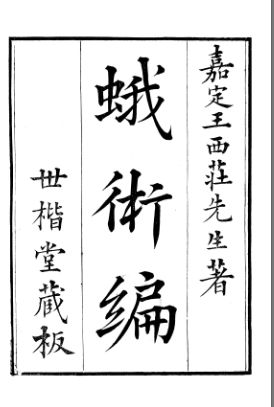 嘉定王西莊先生著
蛾術編
世楷堂藏板